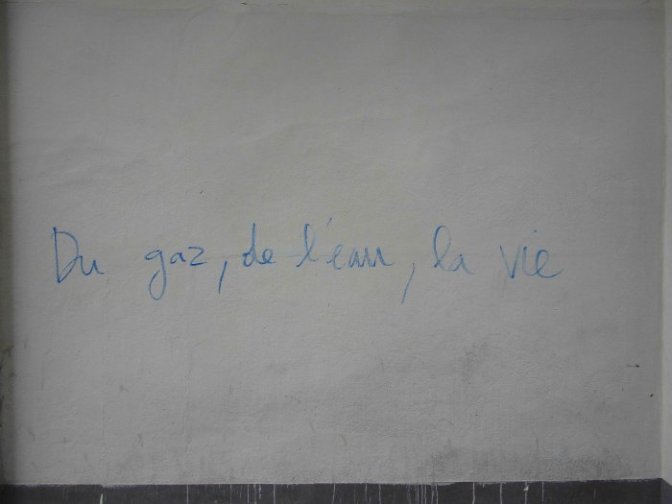 Du gaz, de l'eau, la vie